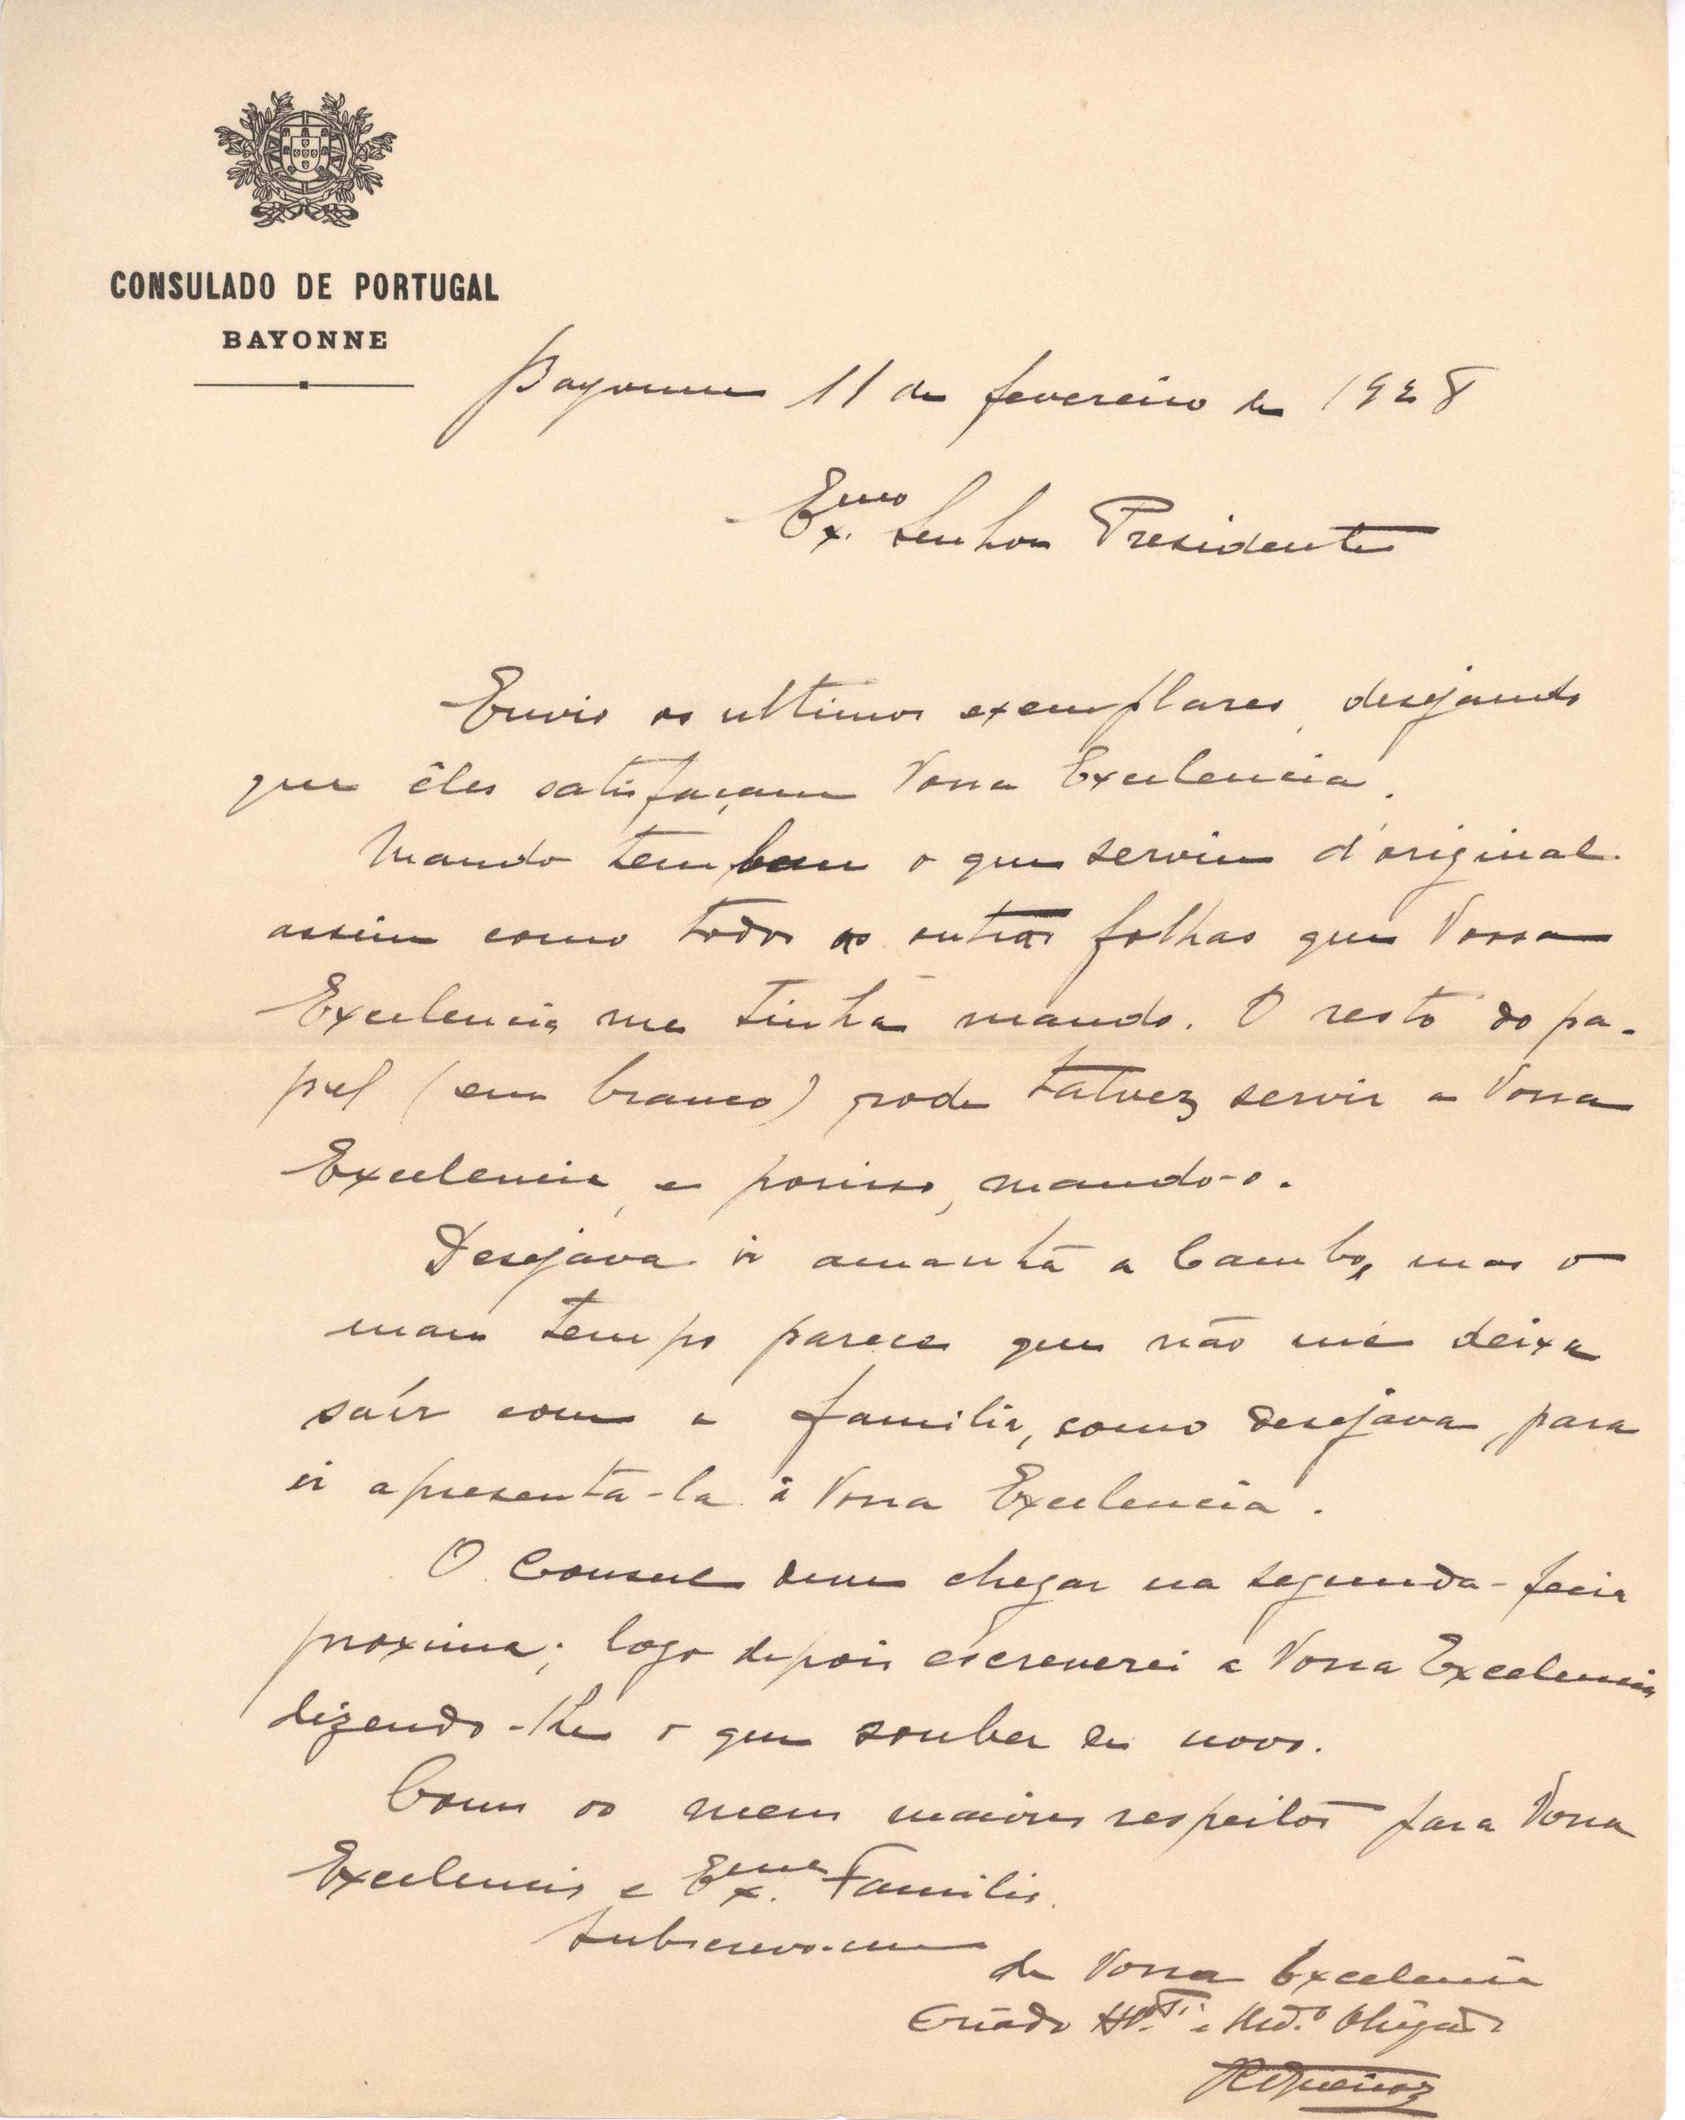 CONSULADO DE PORTUGAL
BAYONNE
Bayonne 11 de fevereiro de 1928
Ex.mo Senhor Presidente
Envio os ultimos exemplares, desejando
que êles satisfaçam Vossa Excelencia.
Mando tembem o que serviu d'original
assim como todos as outras folhas que Vossa
Excelencia me tinha mando. O resto do pa-
pel (em branco) pode talvez servir a Vossa
Excelencia, e porisso, mando-o.
Desejava ir amanhã a Cambo, mas o
mau tempo parece que não me deixa
saír com a familia, como desejava, para
ir apresentá-la á Vossa Excelencia.
O Consul deve chegar na segunda-feira
proxima; logo depois escreverei a Vossa Excelencia
dizendo-lhe o que souber de novo.
Com os meus maiores respeitos para Vossa
Excelencia e Ex.ma Familia.
Subscrevo-me
de Vossa Excelencia
Criado At.to e Mt.o Obrigado